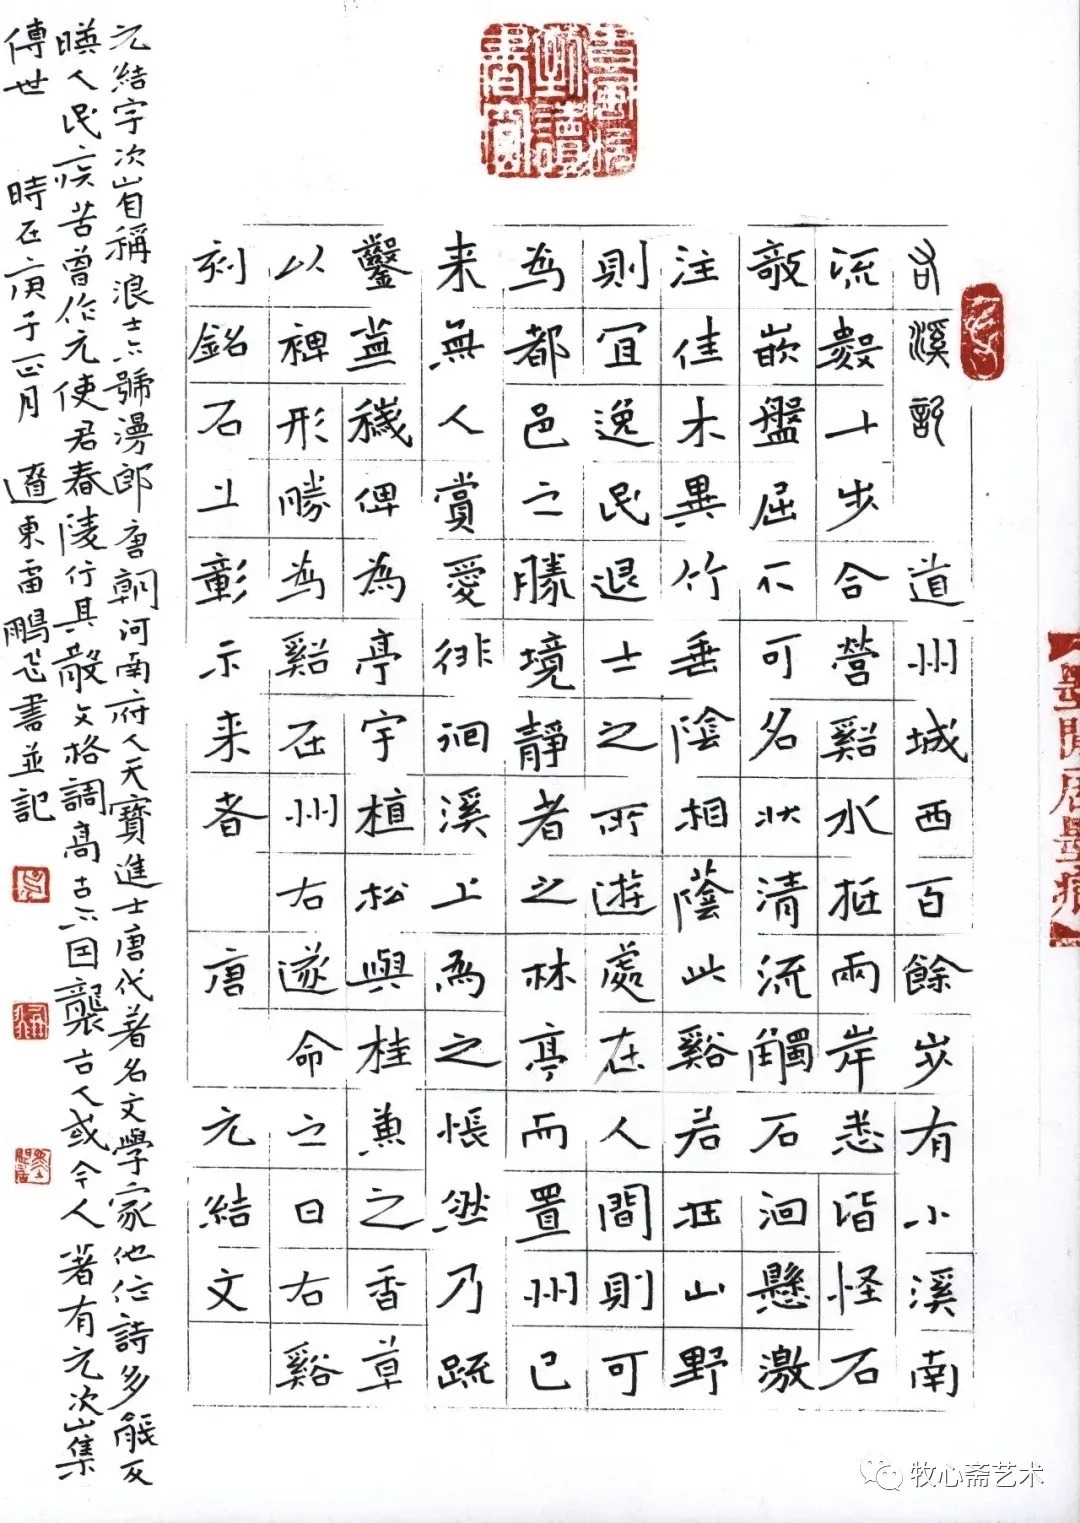 右溪記 道州城西百餘步有小溪南
流數十步合營谿水抵兩岸悉皆怪石
欹嵌盤屈不可名狀清流觸石洄懸激
注佳木異竹垂陰相蔭此谿若在山野
則宜逸民退士之所遊處在人間則可
為都邑之勝境靜者之林亭而置州已
来無人賞愛徘徊溪上為之悵然乃疏
鑿蕪穢俾為亭宇植松與桂兼之香草
以裨形勝為谿在州右遂命之曰右谿
刻銘石上彰示来者 唐 元結文
元結字次山自稱浪士亦號漫郎唐朝河南府人天寶進士唐代著名文學家他作詩多能反
映人民疾苦曾作元使君春陵行其散文格調高古不因襲古人或今人著有元次山集
傳世 時在庚子正月 遼東雷鵬飛書並記
牧心斋艺术